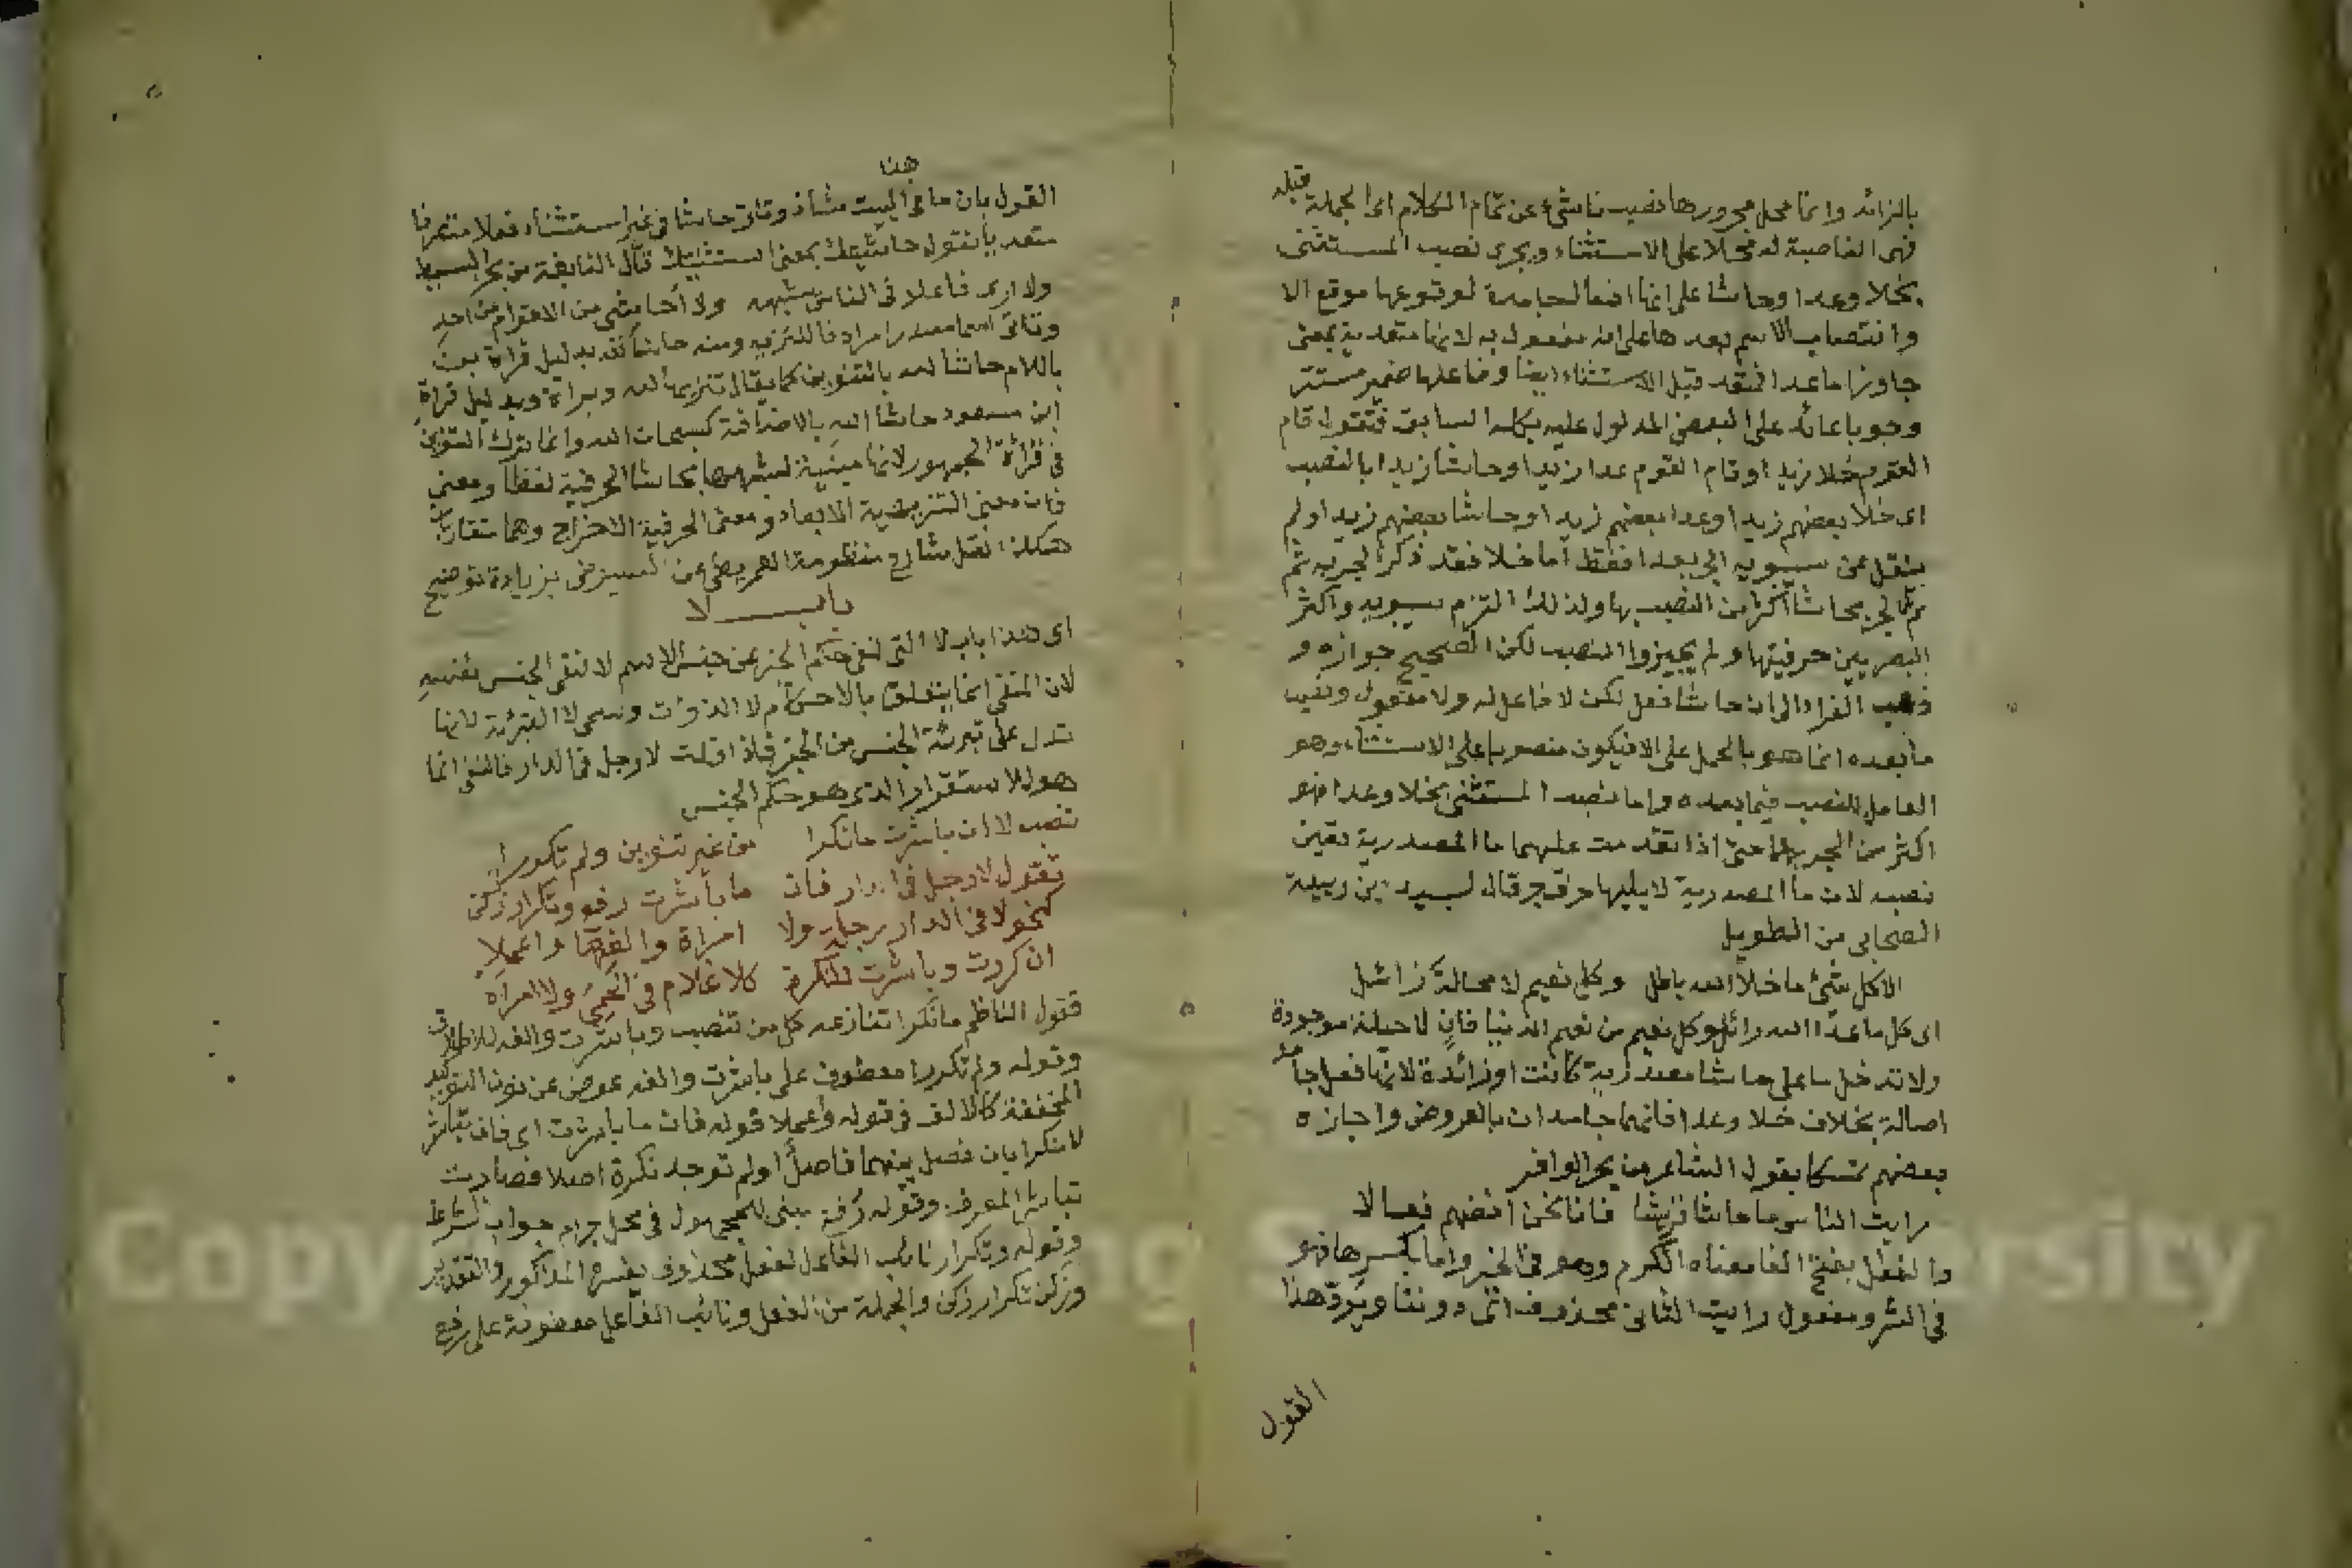 بالزائد وانما محل مجرورها نصب ناشئ عن تمام الكلام اى الجملة قبله
فهى الناصبة له محلا على الاستثناء ويجرى نصب المستثنى
بخلا وعدا وحاشا على انها افعال جامدة لوقوعها موقع الا
وانتصاب الاسم بعدها على انه مفعول به لانها متعدية بمعنى
جاوز اما عدا فتعد قبل الاستثناء ايضا وفاعلها ضمير مستتر
وجوبا عائد على البعض المدلول عليه بكله السابق فتقول قام
القوم خلا زيدا وقام القوم عدا زيدا وحاشا زيدا بالنصب
اى خلا بعضهم زيدا وعدا بعضهم زيدا وحاشا بعضهم زيدا ولم
ينقل عن سيبويه الجر بعدا فقط اما خلا فقد ذكر الجر به ثم
ثم الجر بحاشا أكثر من النصب بها ولذلك التزم سيبويه واكثر
البصريين حرفيتها ولم يجيزوا النصب لكن الصحيح جوازه و
ذهب الفراء الى ان حاشا فعل لكن لا فاعل له ولا مفعول ونصب
ما بعده انما هو بالحمل على الا فيكون منصوبا على الاستثناء وهو
العامل للنصب فيما بعده واما نصب المستثنى بخلا وعدا فهو
اكثر من الجر بهما حتى اذا تقدمت عليهما ما المصدرية تعين
نصبه لان ما المصدرية لا يليها حرف جر قال لبيد بن ربيعة
الصحابى من الطويل
الا كل شئ ما خلا الله باطل وكل نعيم لا محالة زائل
اى كل ما عدا الله زائل وكل نعيم من نعيم الدنيا فان لا حيلة موجودة
ولا تدخل ما على حاشا مصدرية كانت او زائدة لانها فعل جامد
اصالة بخلاف خلا وعدا فانهما جامدان بالعروض واجازه
بعضهم تمسكا بقول الشاعر من بحر الوافر
رايت الناس ما حاشا قريشا فانا نحن افضلهم فعالا
والفعال بفتح الفا معناه الكرم وهو فى الخير واما بكسرها فهو
فى الشر ومفعول رايت الثانى محذوف اى دوننا ويرد هذا
القول
هنا
القول بان ما فى البيت شاذ وتاتى حاشا فى غير استثناء فعلا متصرفا
متعديا تقول حاشيتك بمعنى استثنيتك قال النابغة من بحر البسيط
ولا ارى فاعلا فى الناس يشبهه ولا أحاشى من الاقوام من احد
وتاتى اسما مصدرا مرادفا للتنزيه ومنه حاشا لله بدليل قراءة بعض
باللام حاشا لله بالتنوين كما يقال تنزيها لله وبراءة وبدليل قراءة
ابن مسعود حاشا الله بالاضافة كسبحان الله وانما ترك التنوين
فى قراءة الجمهور لانها مبنية لشبهها بحاشا الحرفية لفظا ومعنى
فان معنى التنزيهية الابعاد ومعنى الحرفية الاخراج وهما متقاربان
هكذا نقل شارح منظومة العمريطى عن بزيادة توضيح
باب لا
اى هذا باب لا التى لنفى حكم الخبر عن جنس الاسم لا لنفى الجنس نفسه
لان المنفى انما يتعلق بالاحكام لا الذوات وتسمى لا التبرئة لانها
تدل على تبرئة الجنس من الخبر فاذا قلت لا رجل فى الدار فالمنفى انما
هو الاستقرار الذى هو حكم الجنس
تنصب لا ان باشرت مانكرا من غير تنوين ولم تكررا
تقول لا رجل فى الدار فان ما باشرت رفع وتكرار زكن
كنحو لا فى الدار رجل ولا امراة والغها واعملا
ان كررت وباشرت للنكرة كلا غلام فى ولا امراة
فقول الناظم مانكرا تنازعه كل من تنصب وباشرت والفه للاطلاق
وقوله ولم تكررا معطوف على باشرت والفه عوض عن نون التوكيد
المخففة كالالف فى قوله واعملا قوله فان ما باشرت اى فان تباشر
لا منكرا بان فصل بينهما فاصل او لم توجد نكرة اصلا فصارت
تباشر المعرف وقوله رفع مبنى للمجهول فى محل جزم جواب الشرط
وقوله وتكرار نائب الفاعل لفعل محذوف يفسره المذكور والتقدير
وزكن تكرار زكن والجملة من الفعل ونائب الفاعل معطوفة على رفع